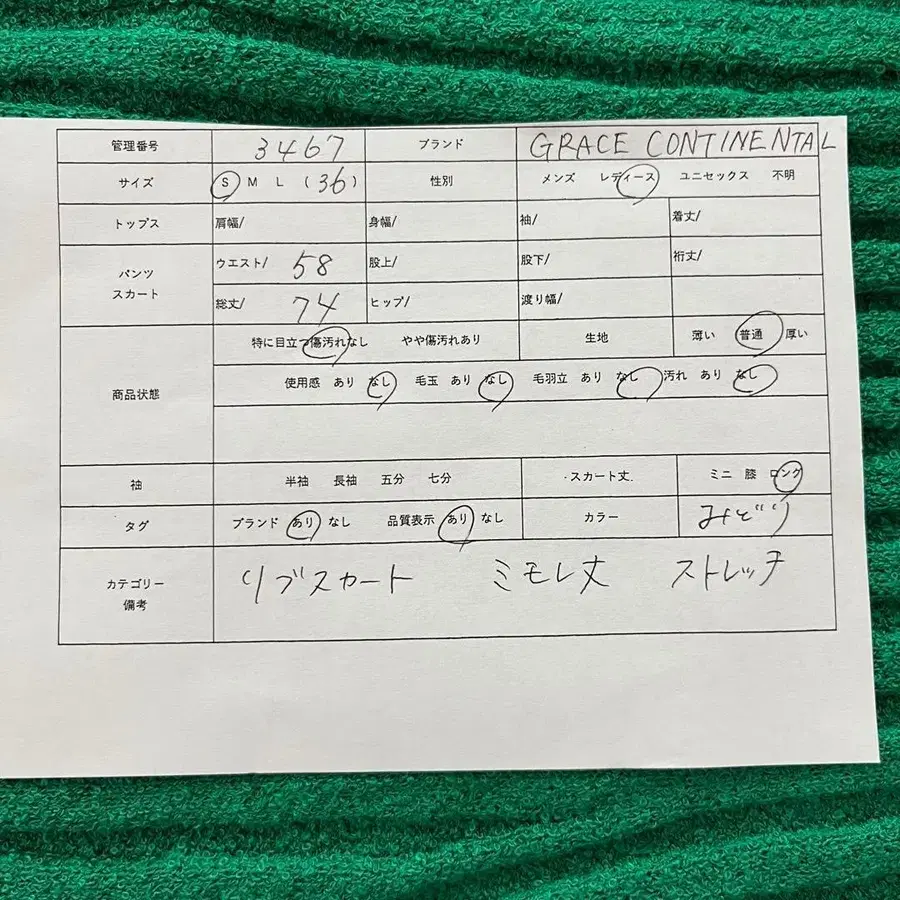 管理番号 3467 ブランド GRACE CONTINENTAL
サイズ S M L (36) 性別 メンズ レディース ユニセックス 不明
トップス 肩幅/ 身幅/ 袖/ 着丈/
パンツ スカート ウエスト/ 58 股上/ 股下/ 裄丈/
総丈/ 74 ヒップ/ 渡り幅/
商品状態 特に目立つ傷汚れなし やや傷汚れあり 生地 薄い 普通 厚い
使用感 あり なし 毛玉 あり なし 毛羽立 あり なし 汚れ あり なし
袖 半袖 長袖 五分 七分 スカート丈 ミニ 膝 ロング
タグ ブランド あり なし 品質表示 あり なし カラー みどり
カテゴリー 備考 リブスカート ミモレ丈 ストレッチ